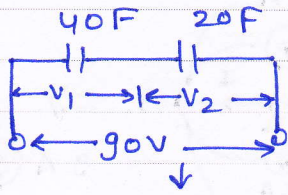 40F 20F
V1 V2
90V